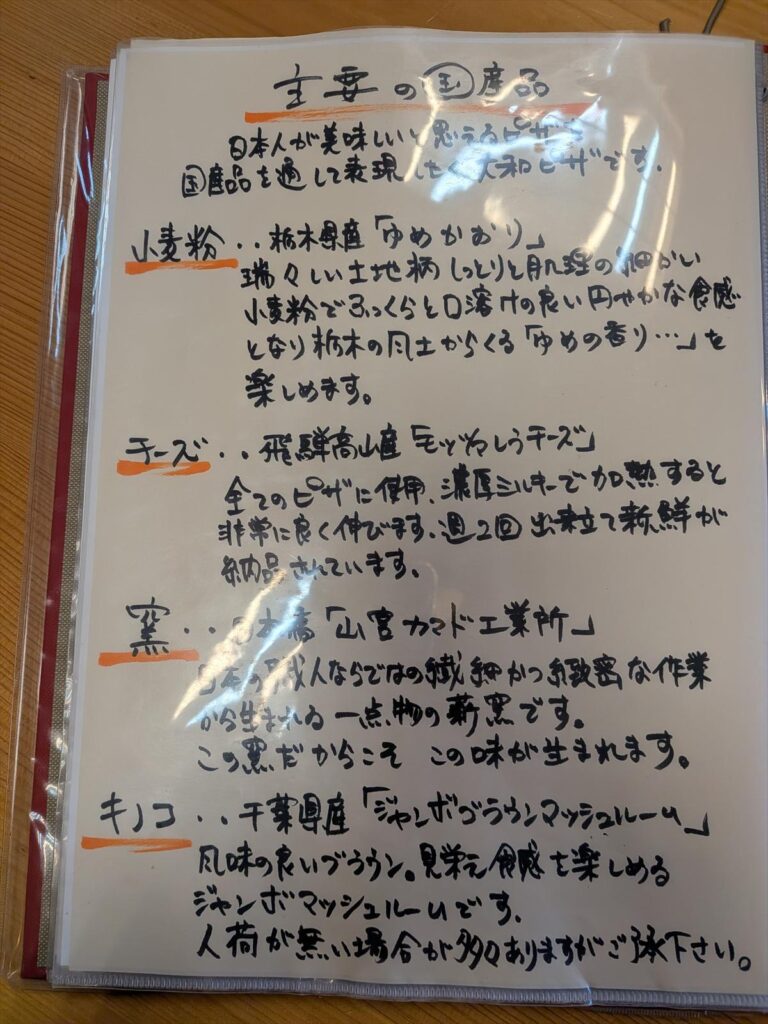 主要の国産品
日本人が美味しいと思えるピザを
国産品を通して表現したく大和ピザです.
小麦粉‥栃木県産「ゆめかおり」
瑞々しい土地柄しっとりと肌理の細かい
小麦粉でふっくらと口溶けの良い円やかな食感
となり栃木の風土からくる「ゆめの香り…」を
楽しめます。
チーズ‥飛騨高山産
全てのピザに使用、濃厚ミルキーで加熱すると
非常に良く伸びます、週2回出来立て新鮮が
納品されています。
窯‥日本橋「山宮カマド工業所」
日本の職人ならではの繊細かつ緻密な作業
から生まれる一点物の薪窯です。
この窯だからこそ この味が生まれます。
キノコ‥千葉県産「ジャンボブラウンマッシュルーム」
風味の良いブラウン。見栄え食感を楽しめる
ジャンボマッシュルームです.
入荷が無い場合が多々ありますがご了承下さい。